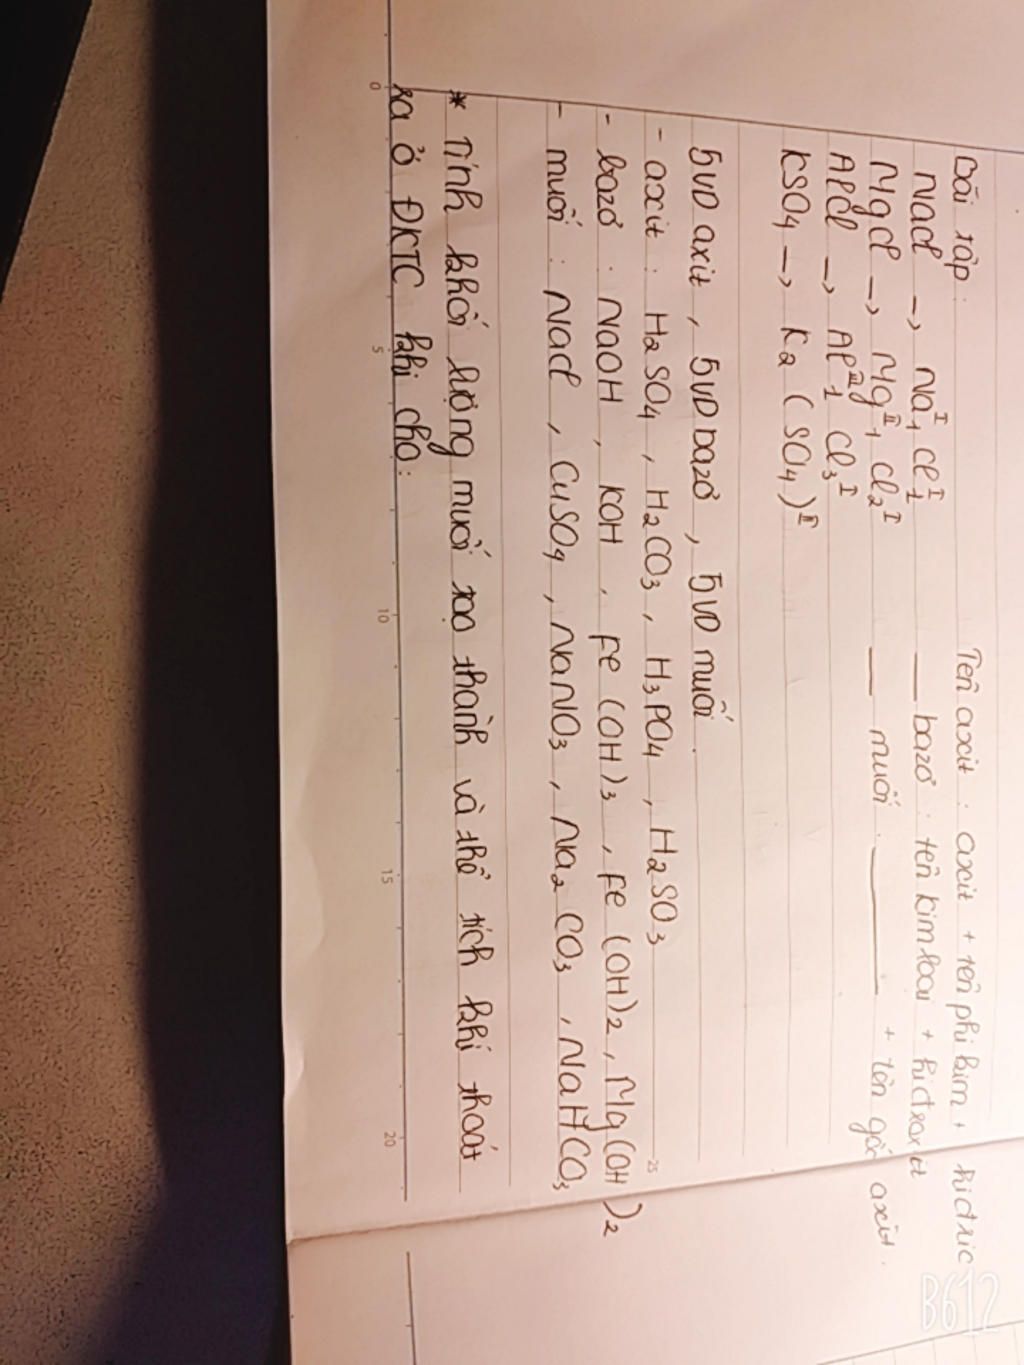 Bài tập: Tên axit: axit + tên phi kim + hiđric
NaCl → Na₁ᴵ Cl₁ᴵ — bazơ: tên kim loại + hiđroxit
MgCl → Mg₁ᴵᴵ Cl₂ᴵ — muối: — + tên gốc axit.
AlCl → Al₁ᴵᴵᴵ Cl₃ᴵ
KSO₄ → K₂ (SO₄)ᴵᴵ
5VD axit, 5VD bazơ, 5VD muối.
- axit: H₂SO₄, H₂CO₃, H₃PO₄, H₂SO₃
- bazơ: NaOH, KOH, Fe(OH)₃, Fe(OH)₂, Mg(OH)₂
- muối: NaCl, CuSO₄, NaNO₃, Na₂CO₃, NaHCO₃
* Tính khối lượng muối tạo thành và thể tích khí thoát
ra ở ĐKTC khi cho:
0 5 10 15 20
25
B612